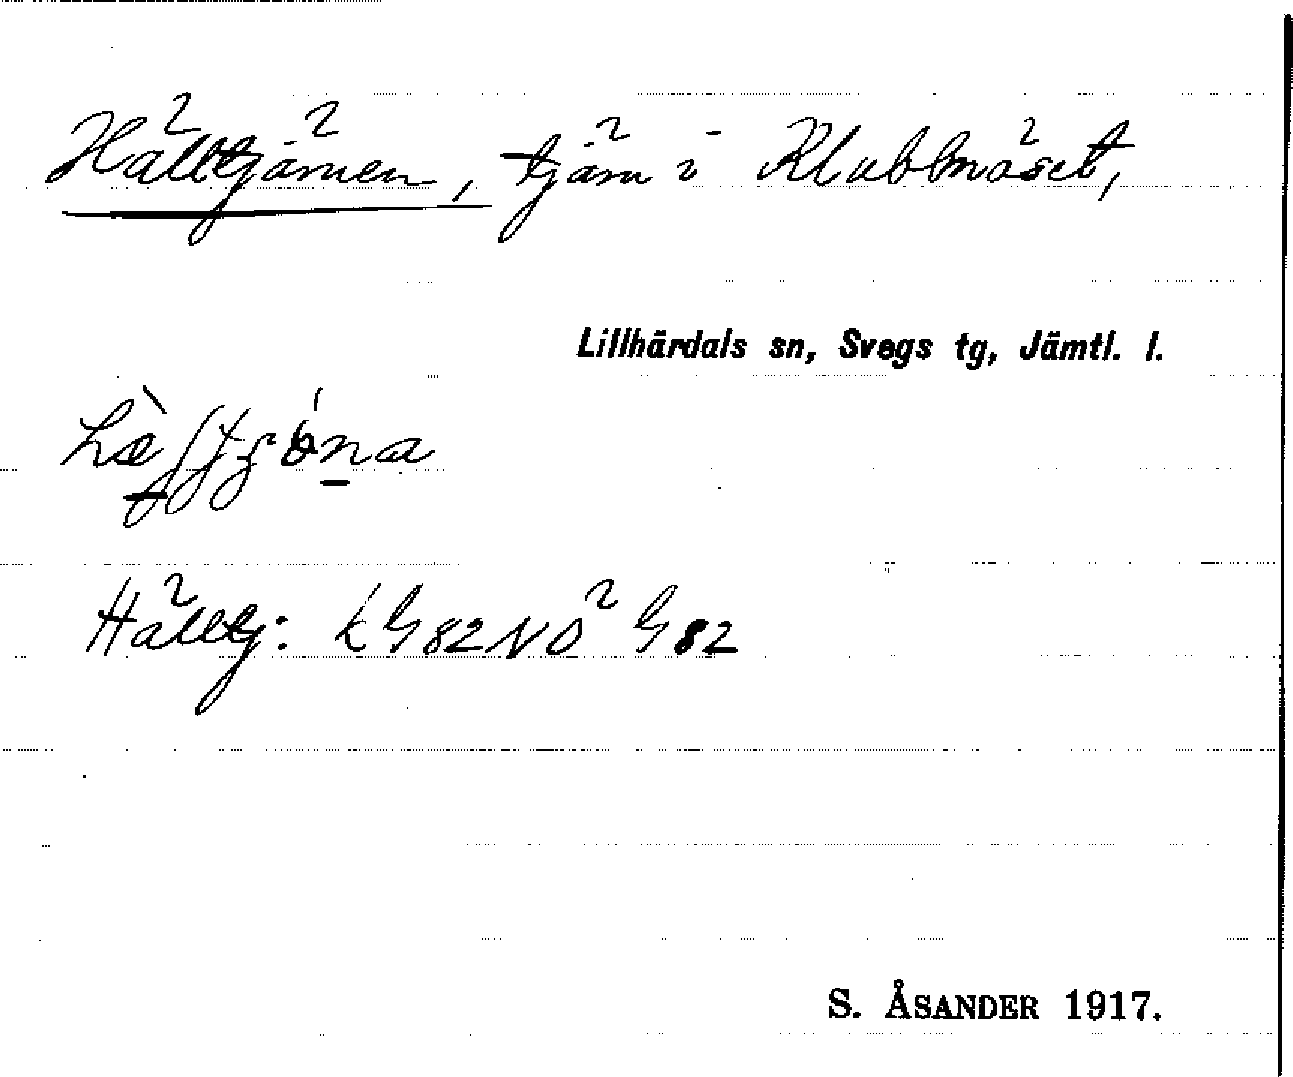 Hälltjärnen, tjärn i Klubbnäset,
Lillhärdals sn, Svegs tg, Jämtl. l.
Hälltj: k G82 NO G82
S. ÅSANDER 1917.